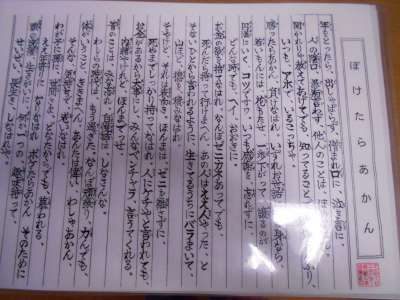 ぼけたらあかん
年をとったら、出しゃばらず、憎まれ口に、泣き言に、
人のかげ口、愚痴言わず、他人のことは、ほめなはれ。
聞かれりゃ教えてあげても、知ってることでも、知らんふり、
いつも、アホで、いるこっちゃ。
勝ったらあかん、負けなはれ、いずれお世話になる身なら、
若いもんには、花もたせ、一歩さがって、譲るのが、
円満にいく、コツですわ。いつも感謝を、忘れずに、
どんな時でも、ヘイ、おおきに。
お金の欲を、捨てなはれ、なんぼゼニカネあってでも、
死んだら持って行けまへん。あの人はええ人やった、と
そないひとから、言われるように、生きてるうちに、バラまいて、
山ほど、徳を積みなはれ。
そやけど、それは表向き、ほんまは、ゼニを、離さずに、
死ぬまで、しっかり持ってなはれ。人にケチやと言われても、
お金があるから大事にし、みんなベンチャラ、言うてくれる。
内緒やけれど、ほんまでっせ。
昔のことは、みな忘れ、自慢話は、しなさんな、
わしらの時代は、もう過ぎた、なんぼ頑張り、力んでも、
体がいうこと、ききまへん。あんたは偉い、わしゃあかん、
そんな気持ちで、老いなはれ。
わが子に孫に、世間さま、どなたからでも、慕われる、
ええ年寄りに、なりなはれ。
ボケたらあかん、そのために